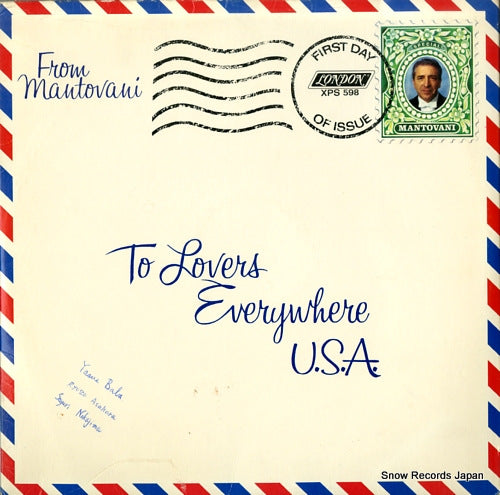 From
Mantovani
FIRST DAY
LONDON
XPS 598
OF ISSUE
MANTOVANI
To Lovers
Everywhere
U.S.A.
Snow Records Japan